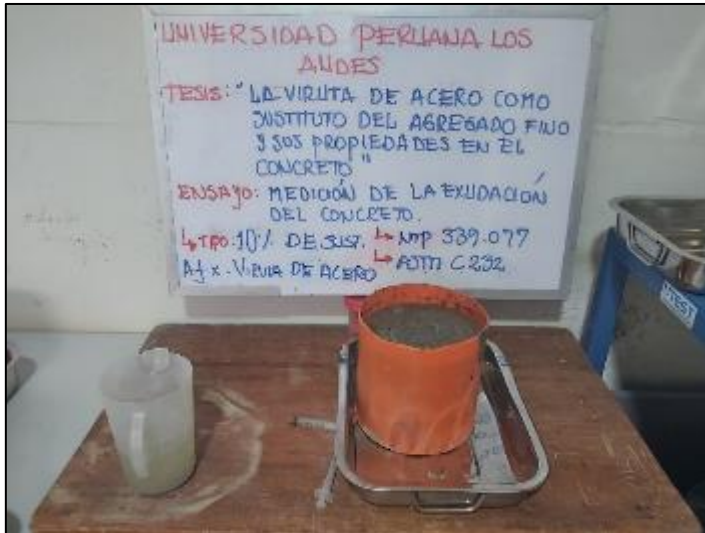 UNIVERSIDAD PERUANA LOS
ANDES
TESIS: "LA VIRUTA DE ACERO COMO
SUSTITUTO DEL AGREGADO FINO
Y SUS PROPIEDADES EN EL
CONCRETO"
ENSAYO: MEDICIÓN DE LA EXUDACIÓN
DEL CONCRETO.
↳ TRO. 10% DE SUST. ↳ NTP 339.077
Af x - VIRUTA DE ACERO ↳ ASTM C232
TEST